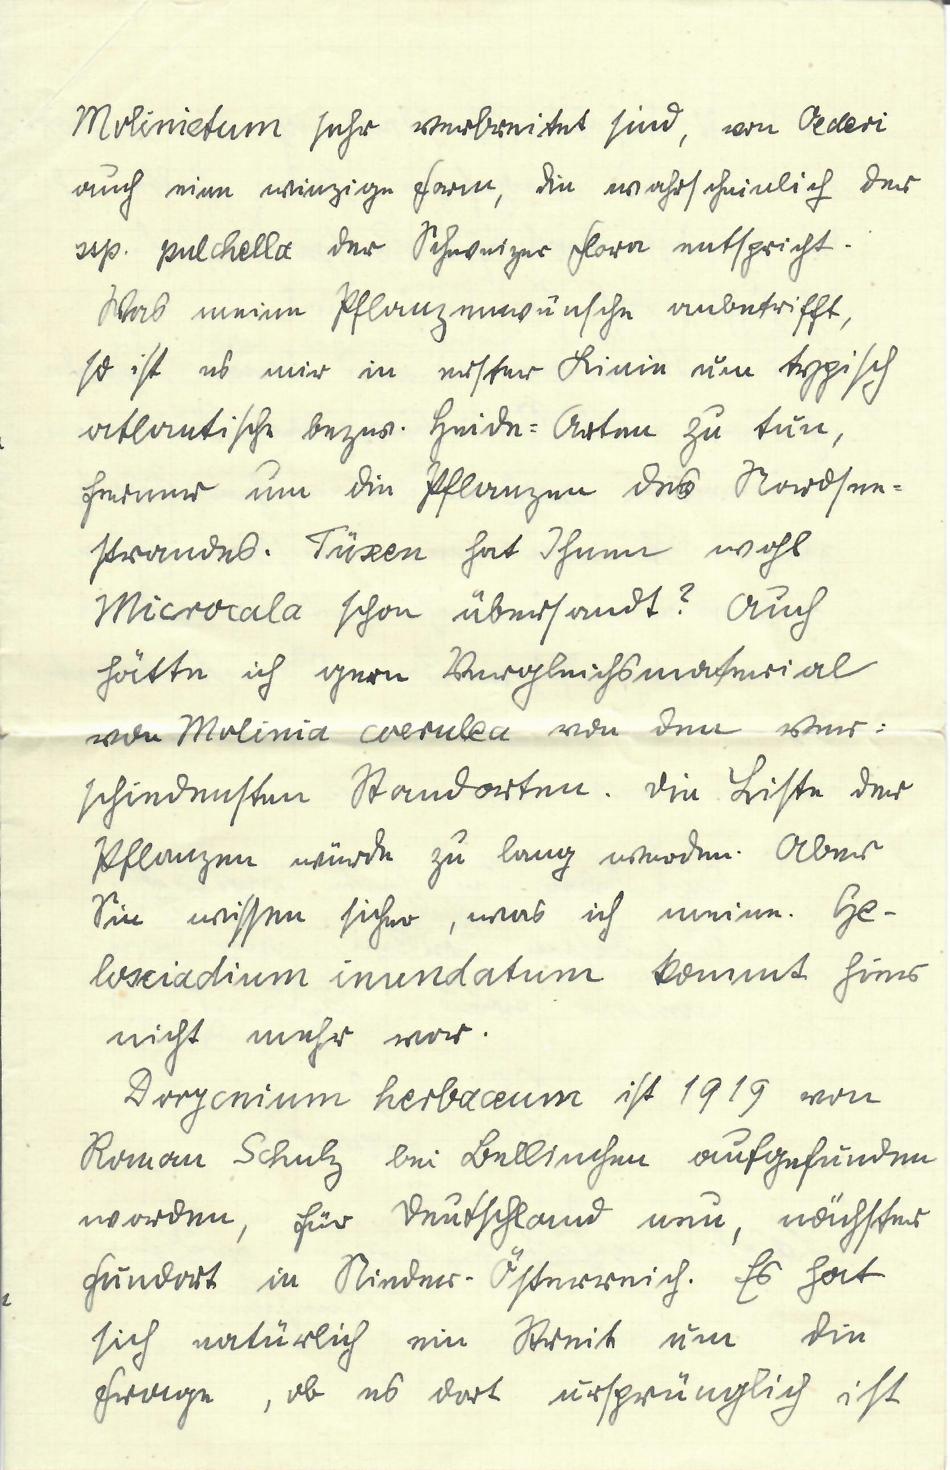 Molinietum sehr verbreitet sind, von Oederi
auch eine winzige Form, die wahrscheinlich der
ssp. pulchella der Schweizer Flora entspricht.
Was meine Pflanzenwünsche anbetrifft,
so ist es mir in erster Linie um typisch
atlantische bezw. Heide= Arten zu tun,
ferner um die Pflanzen des Nordsee=
strandes. Tüxen hat Ihnen wohl
Microcala schon übersandt? Auch
hätte ich gern Vergleichsmaterial
von Molinia coerulea von den ver=
schiedensten Standorten. Die Liste der
Pflanzen würde zu lang werden. Aber
Sie wissen sicher, was ich meine. He-
losciadium inundatum kommt hier
nicht mehr vor.
Dorycnium herbaceum ist 1919 von
Roman Schulz bei Bellinchen aufgefunden
worden, für Deutschland neu, nächster
Fundort in Nieder-Österreich. Es hat
sich natürlich ein Streit um die
Frage, ob es dort ursprünglich ist